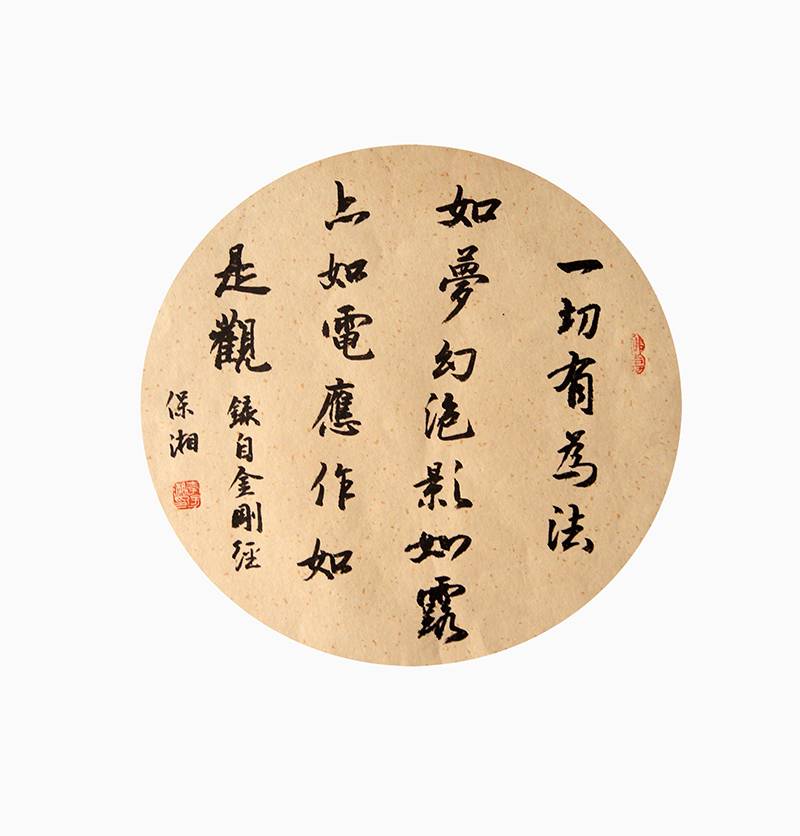 一切有為法
如夢幻泡影如露
亦如電應作如
是觀
錄自金剛經
保湘